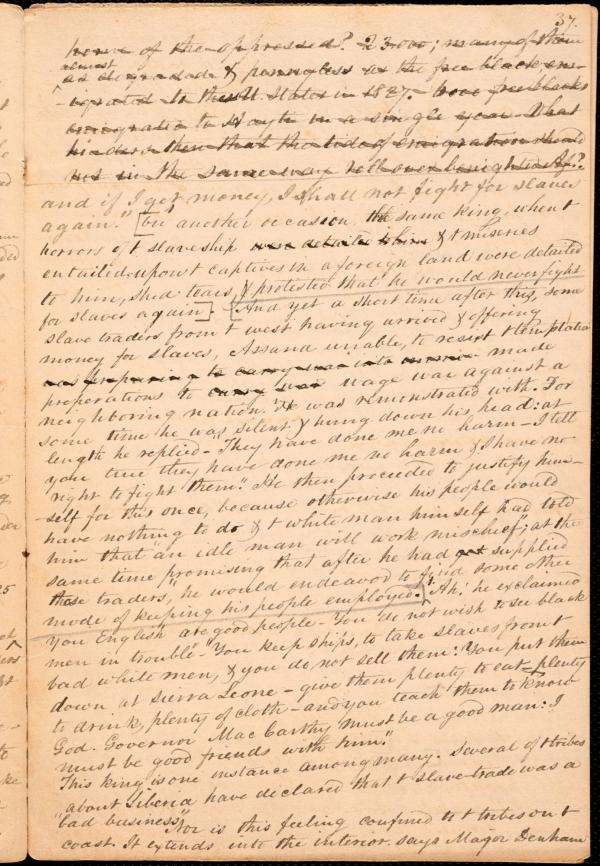 37.
home of the oppressed? 23.000; many of them
almost
as degraded & pennyless as the free blacks em-
-igrated to the U. States in 1827. 6000 free blacks
emigrated to Hayti in a single year. What
hinders then that the tide of emigration should
not in the same way roll over benighted Af.?
and if I get money, I shall not fight for slaves
again." [On another occasion the same king, when t
horrors of t slaveship were detailed to him & t miseries
entailed upon t captives in a foreign land were detailed
to him, shed tears, & protested that he would never fight
for slaves again] [And yet a short time after this, some
slave traders from t west having arrived & offering
money for slaves, Assana unable, to resist t temptation
was preparing to carry war into made
preparations to carry war wage war against a
neighboring nation. He was remonstrated with. For
some time he was silent & hung down his head: at
length he replied - "They have done me no harm - I tell
you true they have done me no harm & I have no
right to fight them." He then proceeded to justify him-
-self for this once, because otherwise his people would
have nothing to do & t white man himself had told
him that "an idle man will work mischief;" at the
same time promising that after he had got supplied
those traders, he would endeavod to find some other
mode of keeping his people employed." "Ah,' he exclaimed
you English" are good people - You do not wish to see black
men in trouble - You keep ships, to take slaves from t
bad white men, & you do not sell them: You put them
down at Sierra Leone - give them plenty to eat - plenty
to drink, plenty of cloth - and you teach them to know
God. Governor MacCarthy must be a good man: I
must be good friends with him."
This king is one instance among many. Several of t tribes
about Liberia have declared that t slave-trade was a
"bad business" Nor is this feeling confined to t tribes on t
coast. It extends into the interior. says Major Denham